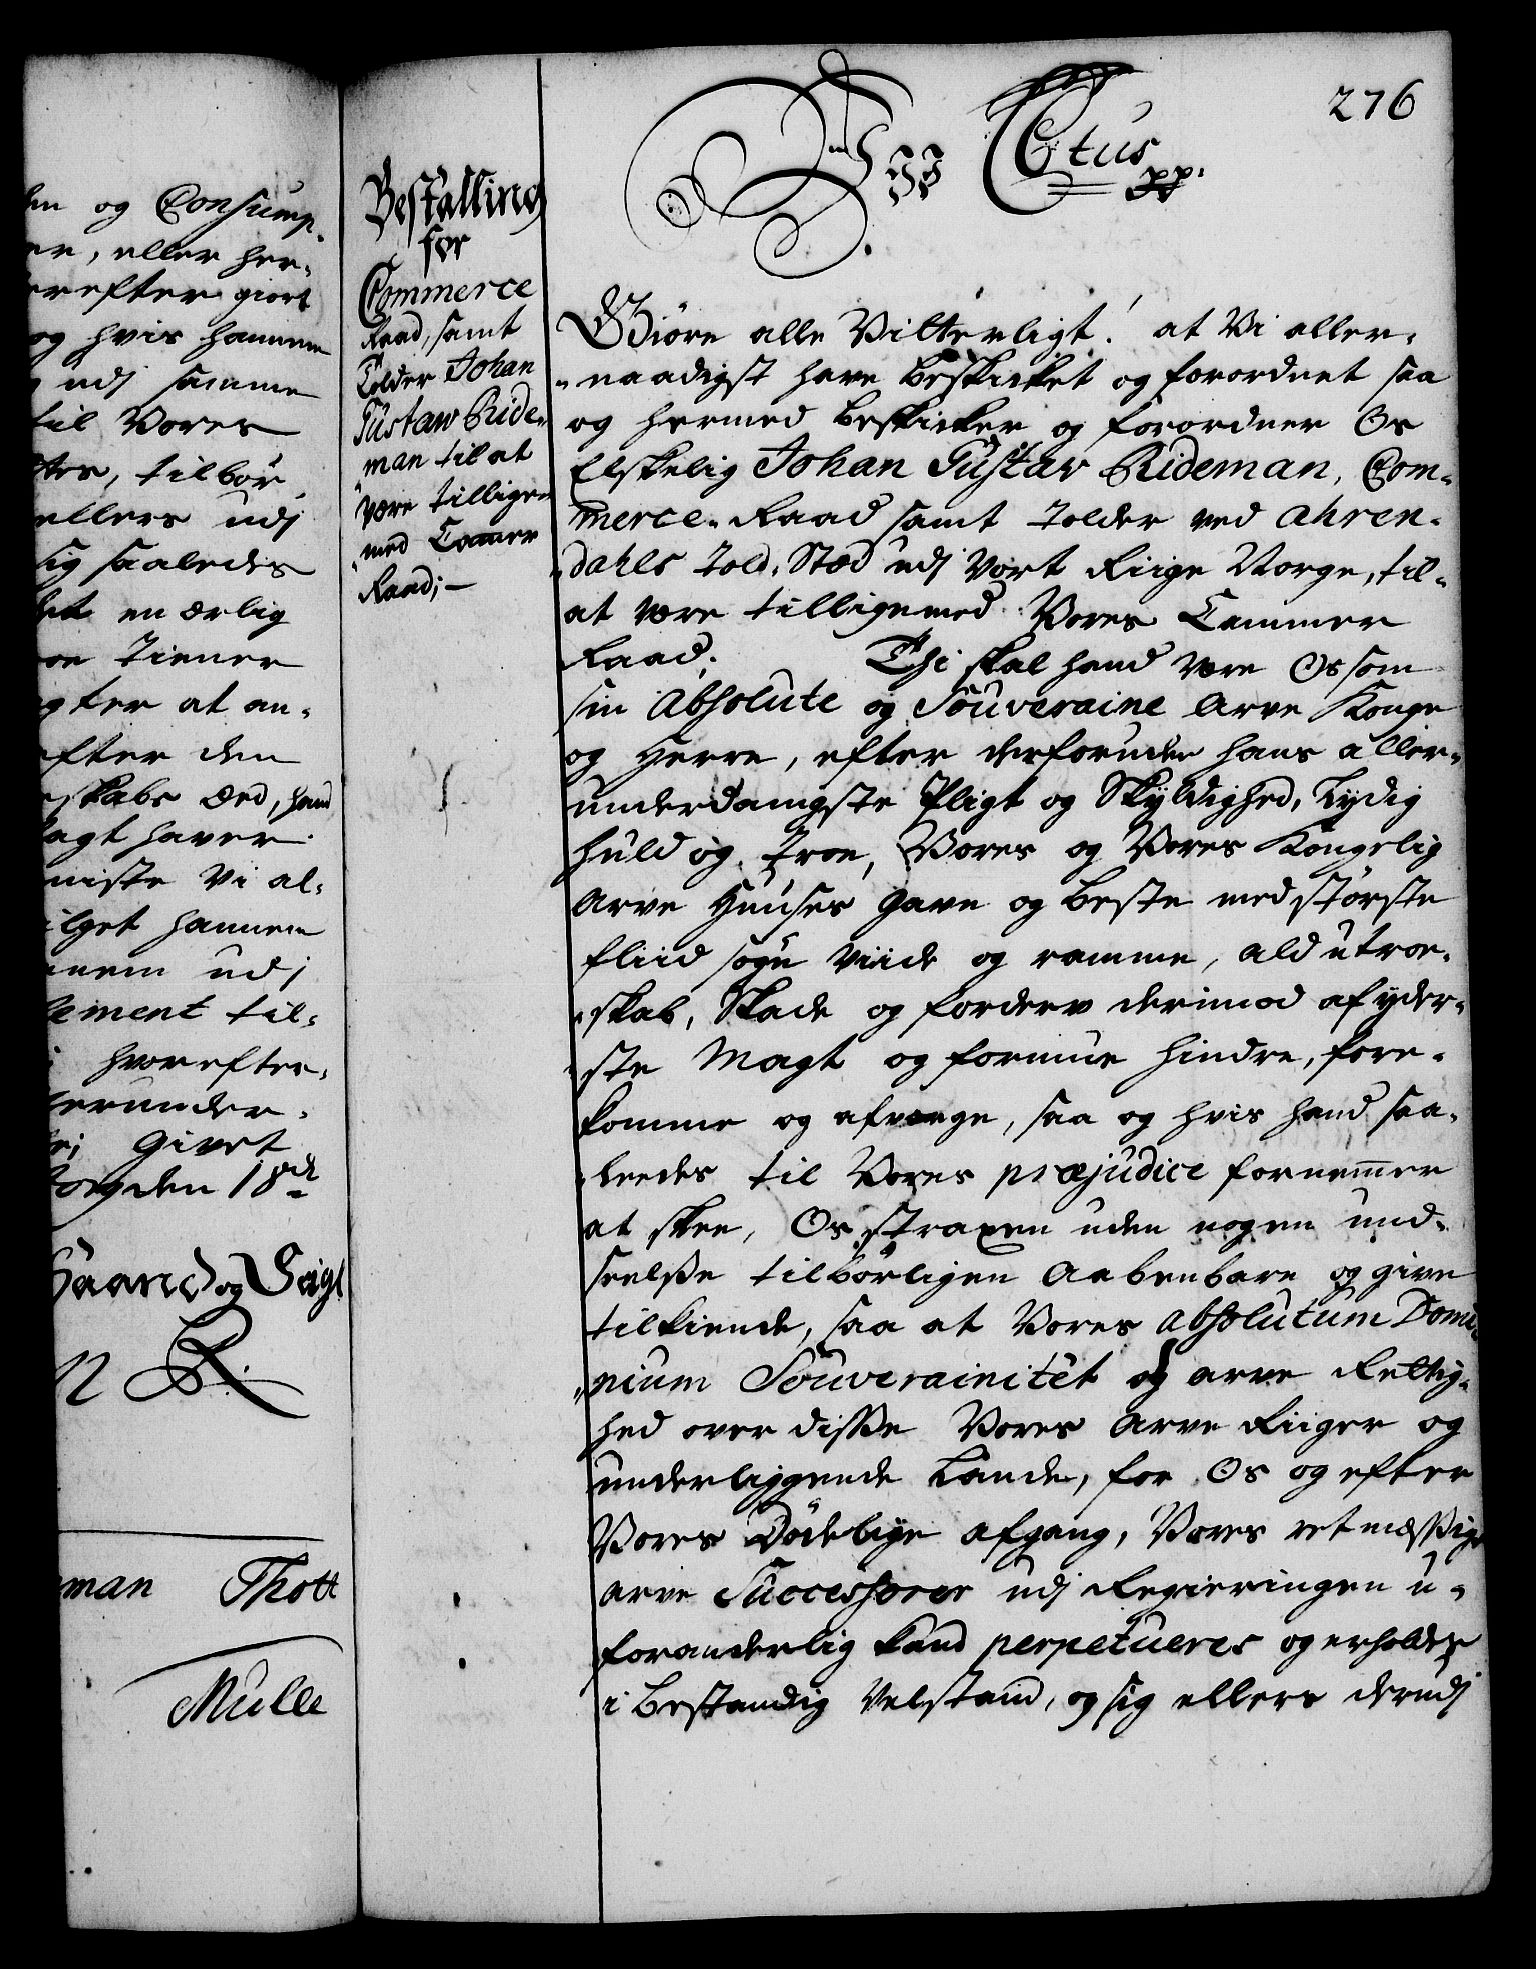 276
Vii Ctus pp.
Bestalling
for
Commerce
Raad, samt
Tolder Johan
Gustaw Ride-
man til at
være tillige
med Cammer
Raad;-
Giöre alle Vitterligt! at Vi aller-
naadigst have beskicket og forordnet saa
og hermed beskicker og forordner Os
Elskelig Johan Gustav Rideman, Com-
merce-Raad samt Tolder ved Ahren-
dahls Told-Stæd udj Vort Riige Norge, til-
at være tilligemed Vores Cammer
Raad; Thi skal hand være Os som
sin Absolute og Souveraine Arve Konge
og Herre, efter derforuden hans aller-
underdanigste Pligt og Skyldighed, Lydig
huld og troe, Vores og Vores Kongelig
Arve Huuses Gavn og beste med störste
fliid söge viide og ramme, ald utroe-
skab, Skade og forderv derimod af yder-
ste Magt og formue hindre, fore-
komme og afværge, saa og hvis hand saa-
leedes til Vores præjudice fornemmer
at skee, Os straxen uden nogen und-
seelsse tilbörligen Aabenbare og give
tilkiende, saa at Vores Absolutum Domi-
nium Souverainitet og arve Rettig-
hed over disse Vores Arve Riiger og
underliggende Lande, for Os og efter
Vores Dödelige afgang, Vores retmæssige
arve Successorer udj Regieringen u-
foranderlig kand perpetueres og erholdes
i bestandig Velstand, og sig ellers derudj
en og Consump-
er, eller her-
erefter giort
og hvis hannem
udj samme
til Vores
tes, tilbör
ellers udj
sig saaledes
det en ærlig
oe Tiener
gter at an-
efter den
skabs Æd, hand
lagt haver.
niste Vi al-
ilget hannem
nem udj
lement til-
hvorefter
erunder-
Givet
borg den 18de
Haand og Seigl
R.
man Thott
Mülle